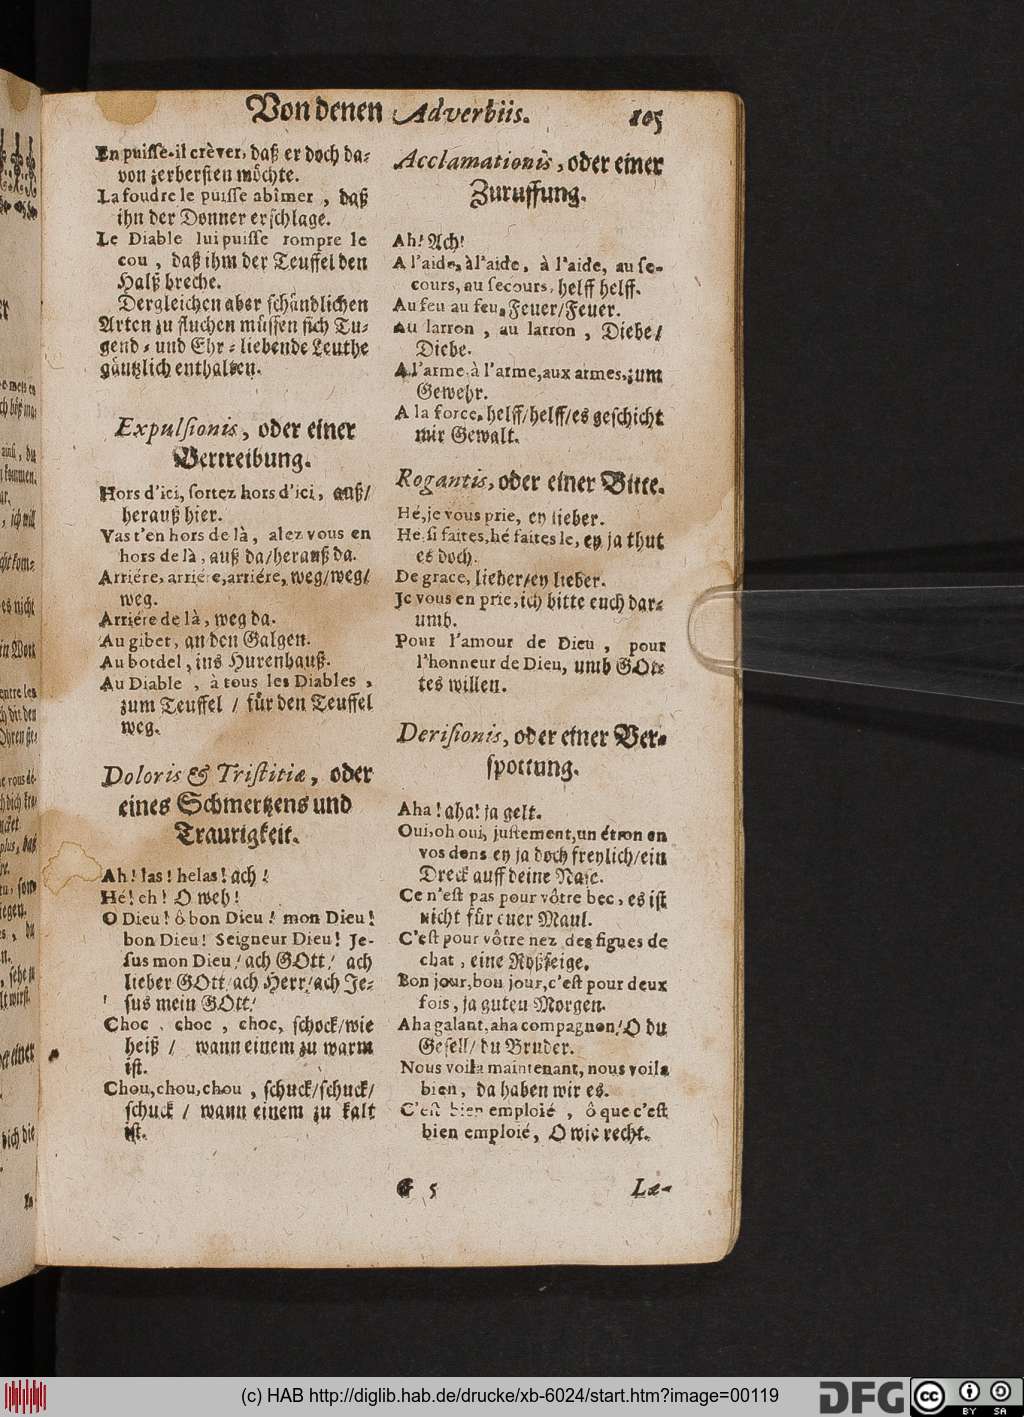 Von denen Adverbiis. 105
En puisse-il crèver, daß er doch da-
von zerbersten möchte.
La foudre le puisse abîmer, daß
ihn der Donner erschlage.
Le Diable lui puisse rompre le
cou, daß ihm der Teuffel den
Halß breche.
Dergleichen aber schändlichen
Arten zu fluchen müssen sich Tu-
gend- und Ehr-liebende Leuthe
gäntzlich enthalten.
Expulsionis, oder einer
Vertreibung.
Hors d'ici, sortez hors d'ici, auß/
herauß hier.
Vas t'en hors de là, alez vous en
hors de là, auß da/herauß da.
Arriére, arriére, arriére, weg/weg/
weg.
Arriére de là, weg da.
Au gibet, an den Galgen.
Au bordel, ins Hurenhauß.
Au Diable, à tous les Diables,
zum Teuffel / für den Teuffel
weg.
Doloris & Tristitiæ, oder
eines Schmertzens und
Traurigkeit.
Ah! las! helas! ach!
Hé! eh! O weh!
O Dieu! ô bon Dieu! mon Dieu!
bon Dieu! Seigneur Dieu! Je-
sus mon Dieu! ach GOtt! ach
lieber GOtt/ach Herr/ach Je-
sus mein GOtt!
Choc, choc, choc, schock/wie
heiß / wann einem zu warm
ist.
Chou, chou, chou, schuck/schuck/
schuck / wann einem zu kalt
ist.
Acclamationis, oder einer
Zuruffung.
Ah! Ach!
A l'aide, à l'aide, à l'aide, au se-
cours, au secours, helff helff.
Au feu au feu, Feuer/Feuer.
Au larron, au larron, Diebe/
Diebe.
A l'arme à l'arme, aux armes, zum
Gewehr.
A la force, helff/helff/es geschicht
mir Gewalt.
Rogantis, oder einer Bitte.
Hé, je vous prie, ey lieber.
He, si faites, hé faites le, ey ja thut
es doch.
De grace, lieber/ey lieber.
Je vous en prie, ich bitte euch dar-
umb.
Pour l'amour de Dieu, pour
l'honneur de Dieu, umb GOt-
tes willen.
Derisionis, oder einer Ver-
spottung.
Aha! aha! ja gelt.
Oui, oh oui, justement, un étron en
vos dens ey ja doch freylich/ein
Dreck auff deine Nase.
Ce n'est pas pour vôtre bec, es ist
nicht für euer Maul.
C'est pour vôtre nez, des figues de
chat, eine Roßfeige.
Bon jour, bon jour, c'est pour deux
fois, ja guten Morgen.
Aha galant, aha compagnon! O du
Gesell/du Bruder.
Nous voila maintenant, nous voila
bien, da haben wir es.
C'est bien emploié, ô que c'est
bien emploié, O wie recht.
G 5 Læ-
(c) HAB http://diglib.hab.de/drucke/xb-6024/start.htm?image=00119
DFG
cc BY SA